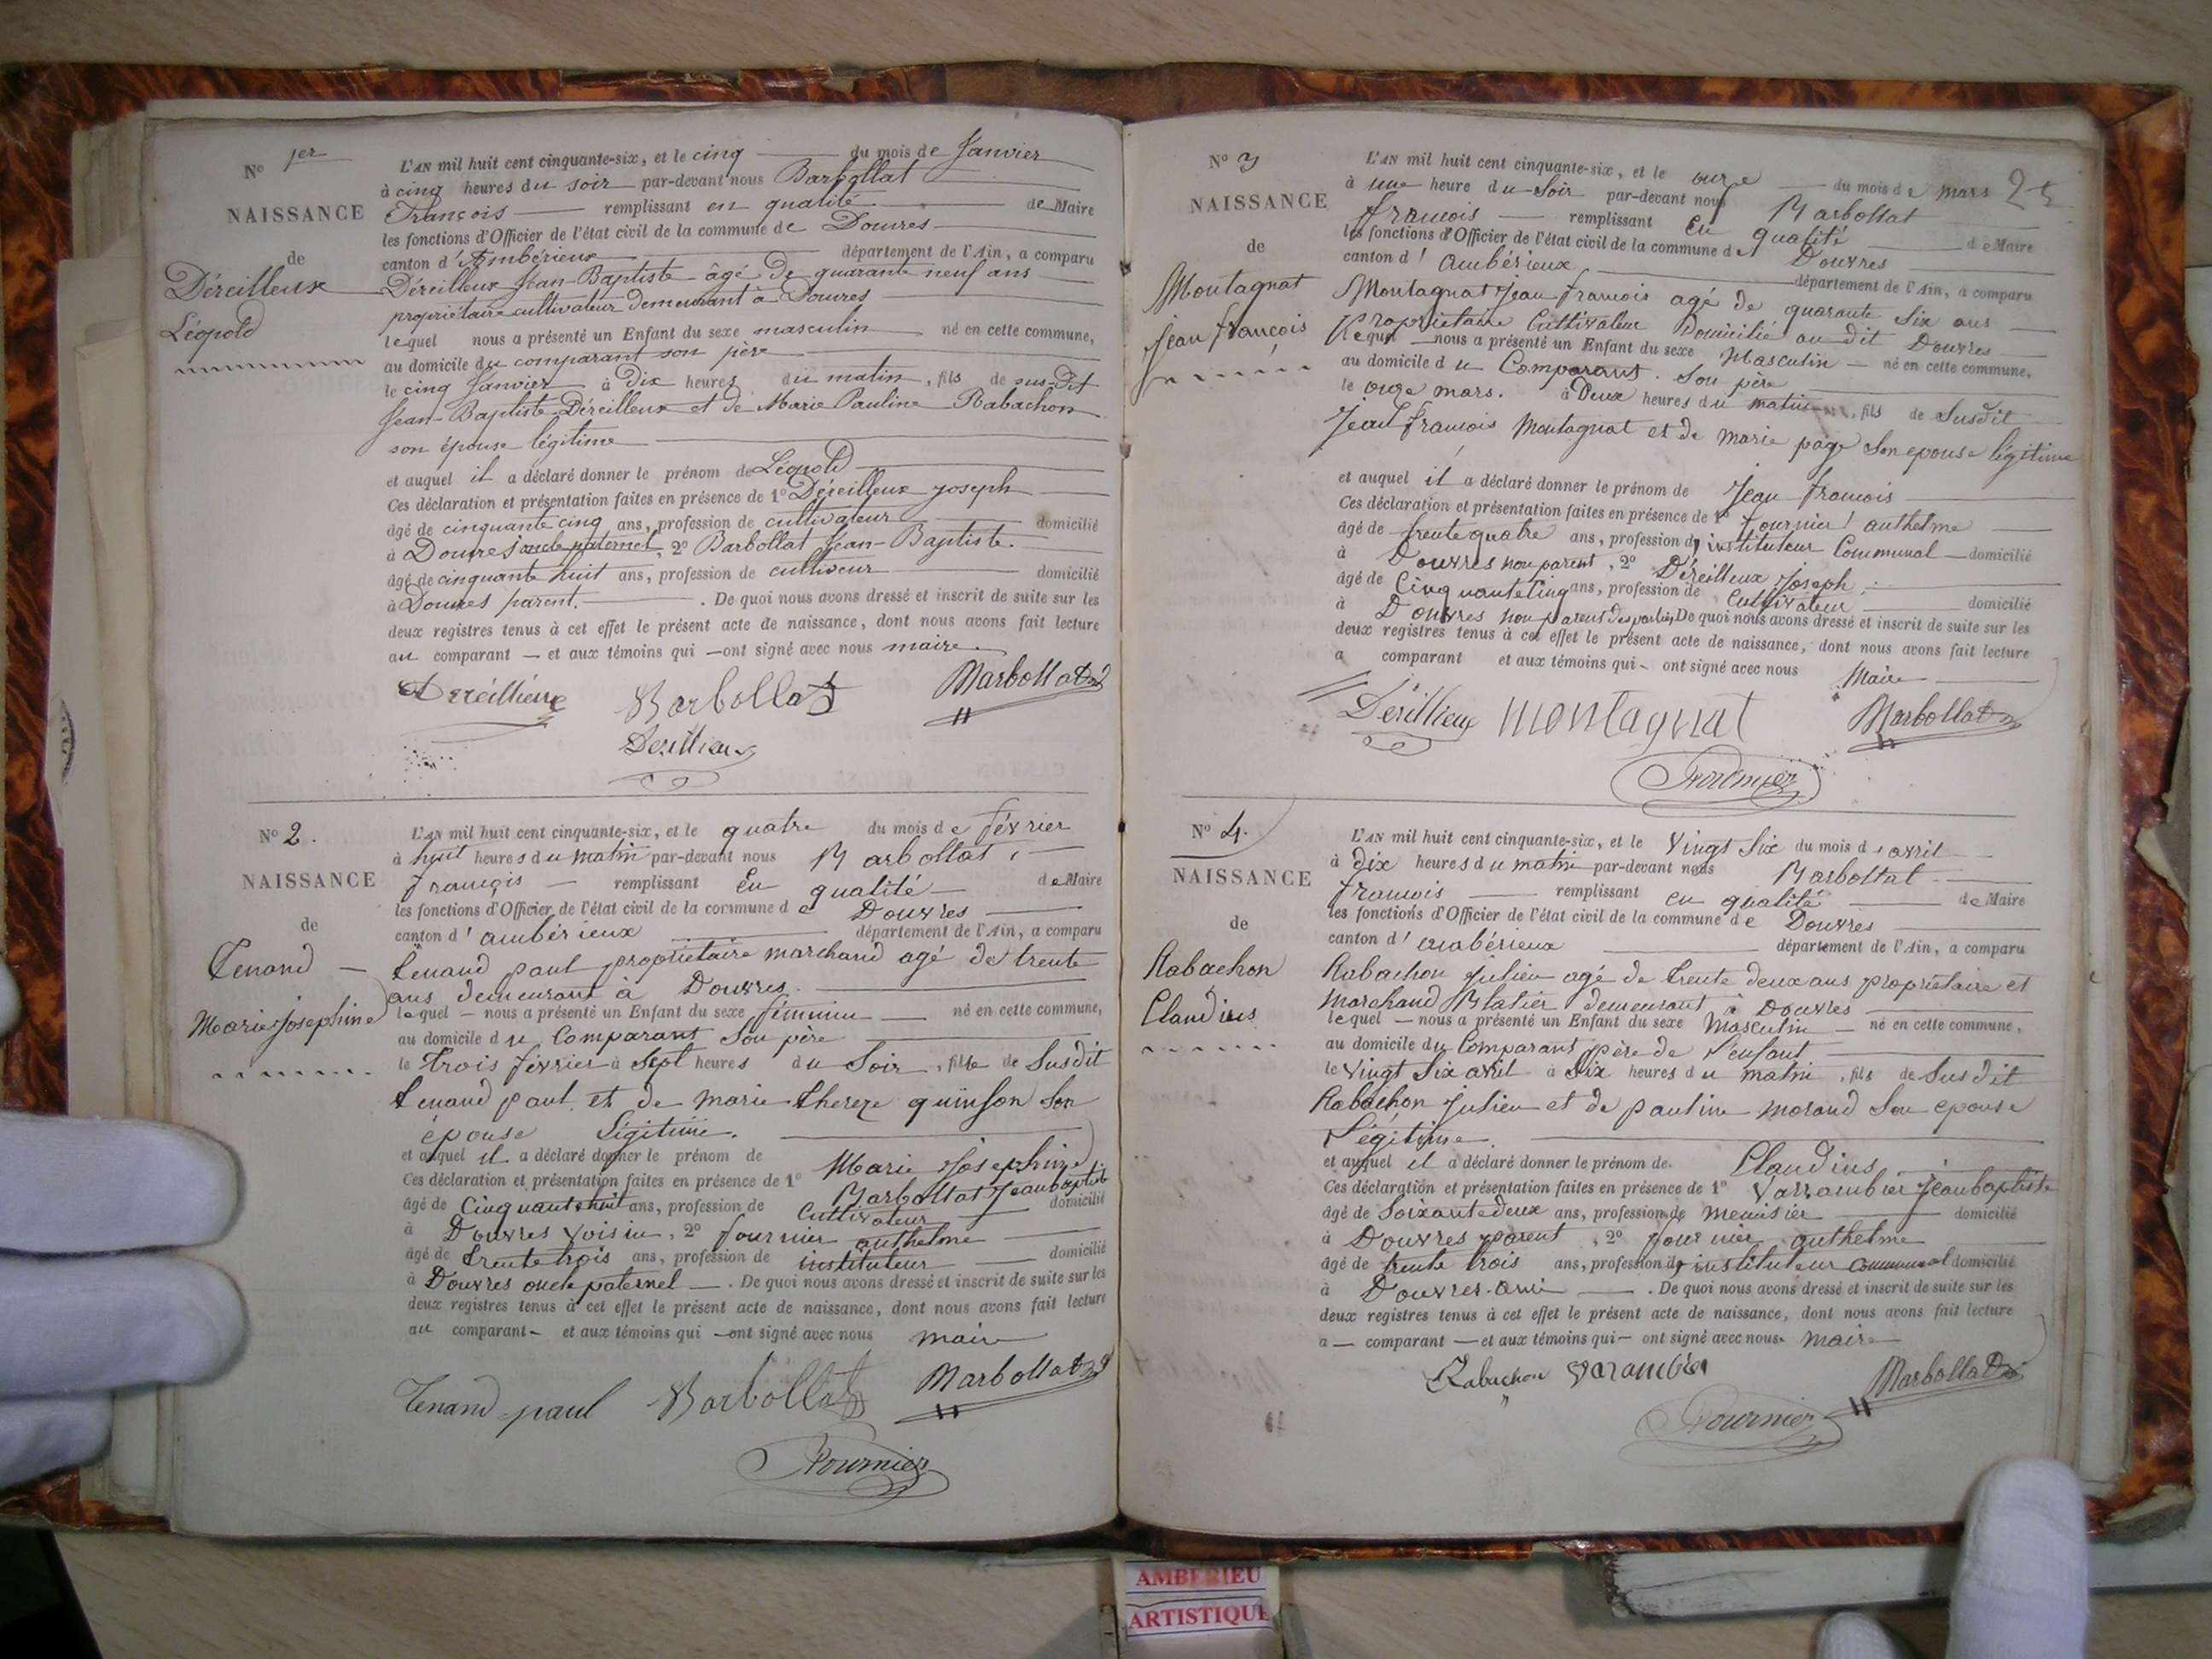 No 1er
NAISSANCE
de
Déreilleux
Léopold
L'AN mil huit cent cinquante-six, et le cinq du mois de Janvier
à cinq heures du soir par-devant nous Barbollat
François remplissant en qualité de Maire
les fonctions d'Officier de l'état civil de la commune de Douvres
canton d'Ambérieux département de l'Ain, a comparu
Déreilleux Jean-Baptiste âgé de quarante neuf ans
propriétaire cultivateur demeurant à Douvres
lequel nous a présenté un Enfant du sexe masculin né en cette commune,
au domicile du comparant son père
le cinq Janvier à dix heures du matin, fils de sus-dit
Jean-Baptiste Déreilleux et de Marie Pauline Rabachon
son épouse légitime
et auquel il a déclaré donner le prénom de Léopold
Ces déclaration et présentation faites en présence de 1° Déreilleux joseph
âgé de cinquante cinq ans, profession de cultivateur domicilié
à Douvres oncle paternel, 2° Barbollat Jean-Baptiste
âgé de cinquante huit ans, profession de cultiveur domicilié
à Douvres parent. De quoi nous avons dressé et inscrit de suite sur les
deux registres tenus à cet effet le présent acte de naissance, dont nous avons fait lecture
au comparant et aux témoins qui ont signé avec nous maire
Dereillieux Barbollat Barbollat
Dereillieux
No 2.
NAISSANCE
de
Tenand
Marie Josephine
L'AN mil huit cent cinquante-six, et le quatre du mois de février
à huit heures du matin par-devant nous Barbollat
françois remplissant En qualité de Maire
les fonctions d'Officier de l'état civil de la commune de Douvres
canton d'ambérieux département de l'Ain, a comparu
tenand paul propriétaire marchand agé de trente
ans demeurant à Douvres
lequel nous a présenté un Enfant du sexe féminin né en cette commune,
au domicile du Comparant Son père
le trois février à sept heures du Soir, fille de Susdit
tenand paul et de marie thereze quinson Son
épouse légitime.
et auquel il a déclaré donner le prénom de Marie Josephine
Ces déclaration et présentation faites en présence de 1° Barbollat Jeanbaptiste
âgé de Cinquante huit ans, profession de Cultivateur domicilié
à Douvres voisin, 2° fournier anthelme
âgé de trente trois ans, profession de instituteur domicilié
à Douvres oncle paternel. De quoi nous avons dressé et inscrit de suite sur les
deux registres tenus à cet effet le présent acte de naissance, dont nous avons fait lecture
au comparant et aux témoins qui ont signé avec nous maire
Tenand paul Barbollat Barbollat
Fournier
No 3
NAISSANCE
de
Montagnat
Jean françois
L'AN mil huit cent cinquante-six, et le onze du mois de mars 25
à une heure du Soir par-devant nous Barbollat
francois remplissant En qualité de Maire
les fonctions d'Officier de l'état civil de la commune de Douvres
canton d'ambérieux département de l'Ain, a comparu
Montagnat Jean francois agé de quarante Six ans
Propriétaire Cultivateur Domicilié au dit Douvres
lequel nous a présenté un Enfant du sexe Masculin né en cette commune,
au domicile du Comparant. Son père
le onze mars. à Deux heures du matin, fils de Susdit
Jean francois Montagnat et de marie page Son epouse légitime
et auquel il a déclaré donner le prénom de Jean francois
Ces déclaration et présentation faites en présence de 1° fournier anthelme
âgé de trente quatre ans, profession d'instituteur Communal domicilié
à Douvres non parent, 2° Déreilleux Joseph
âgé de Cinquante Cinq ans, profession de Cultivateur domicilié
à Douvres non parent des parties De quoi nous avons dressé et inscrit de suite sur les
deux registres tenus à cet effet le présent acte de naissance, dont nous avons fait lecture
a comparant et aux témoins qui ont signé avec nous Maire
Déreillieux montagnat Barbollat
Fournier
No 4.
NAISSANCE
de
Rabachon
Claudius
L'AN mil huit cent cinquante-six, et le Vingt Six du mois d'avril
à dix heures du matin par-devant nous Barbollat
francois remplissant en qualité de Maire
les fonctions d'Officier de l'état civil de la commune de Douvres
canton d'ambérieux département de l'Ain, a comparu
Rabachon Julien agé de trente deux ans propriétaire et
marchand Blatier demeurant à Douvres
lequel nous a présenté un Enfant du sexe Masculin né en cette commune,
au domicile du Comparant père de l'enfant
le Vingt Six avril à Six heures du matin, fils de Sus dit
Rabachon Julien et de pauline morand Son epouse
Légitime.
et auquel il a déclaré donner le prénom de Claudius
Ces déclaration et présentation faites en présence de 1° Varrambier Jeanbaptiste
âgé de Soixante deux ans, profession de menuisier domicilié
à Douvres parent, 2° fournier anthelme
âgé de trente trois ans, profession d'instituteur Communal domicilié
à Douvres ami. De quoi nous avons dressé et inscrit de suite sur les
deux registres tenus à cet effet le présent acte de naissance, dont nous avons fait lecture
a comparant et aux témoins qui ont signé avec nous. maire
Rabachon Varambier Barbollat
Fournier
AMBERIEU
ARTISTIQUE